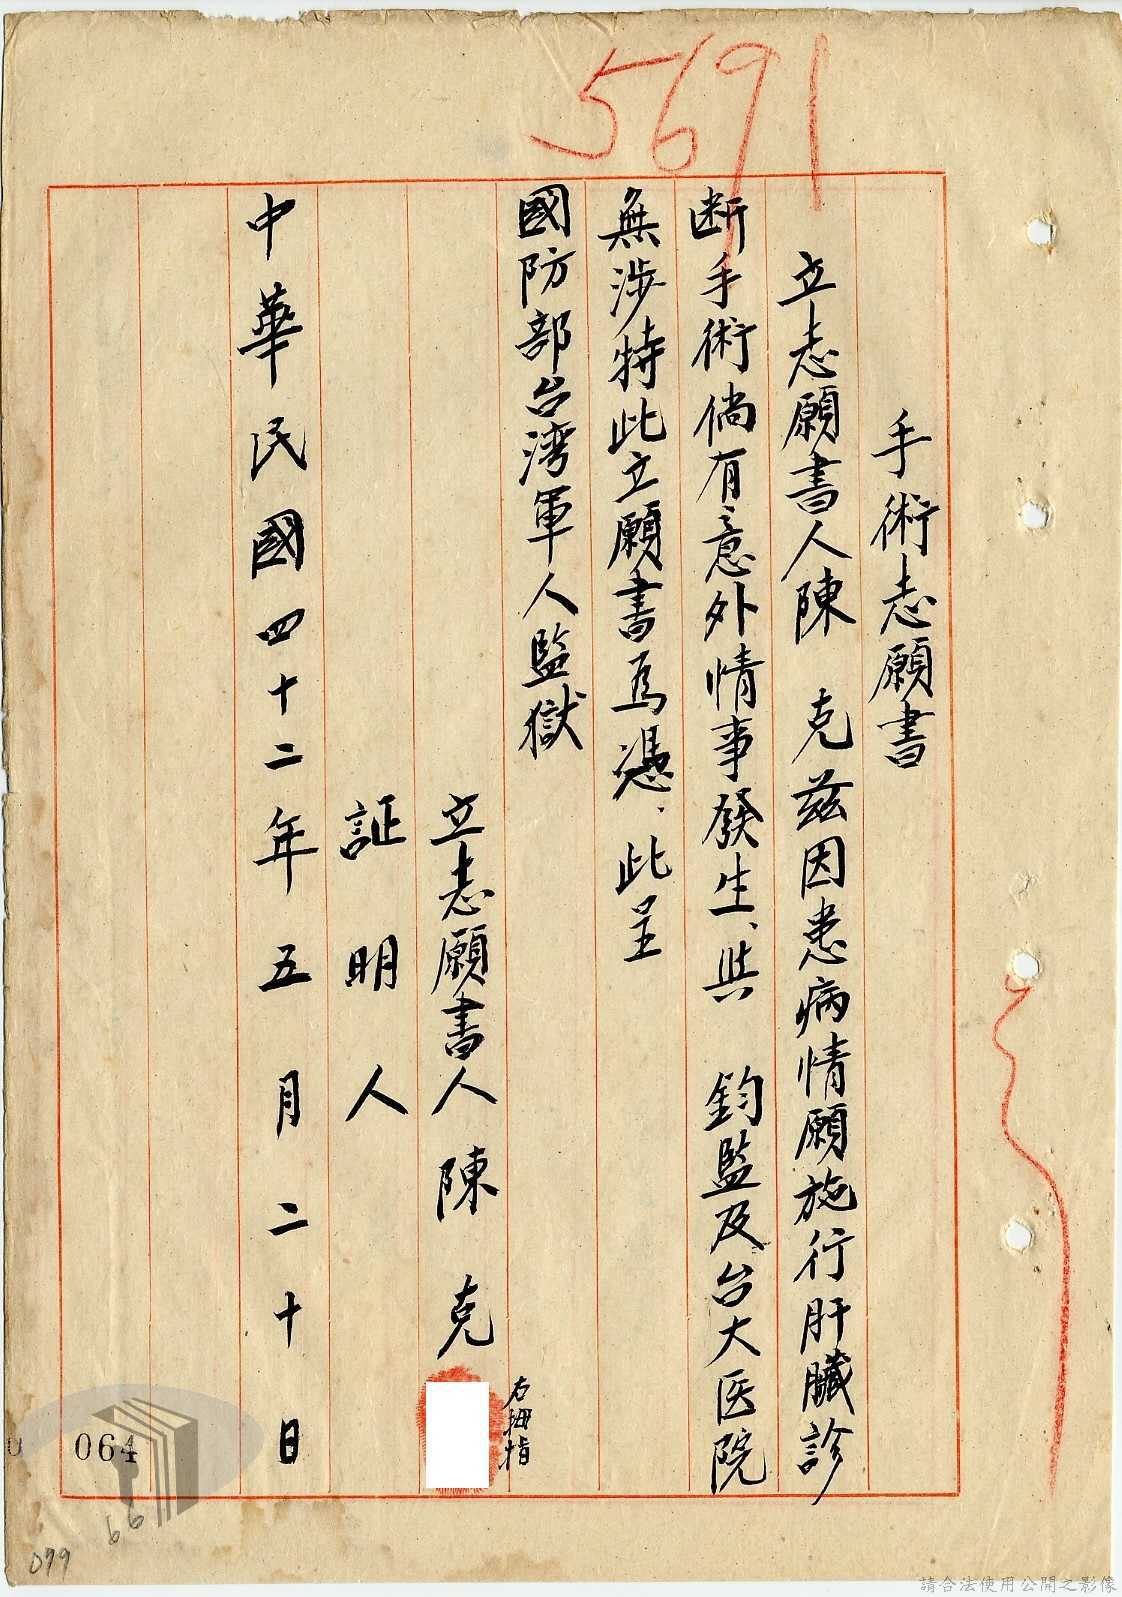 5691
手術志願書
立志願書人陳 克茲因患病情願施行肝臟診
断手術倘有意外情事發生、與 鈞監及台大医院
無涉特此立願書為憑、此呈
國防部台湾軍人監獄
立志願書人陳 克
右拇指
証明人
中華民國四十二年五月二十日
064
66
099
請合法使用公開之影像